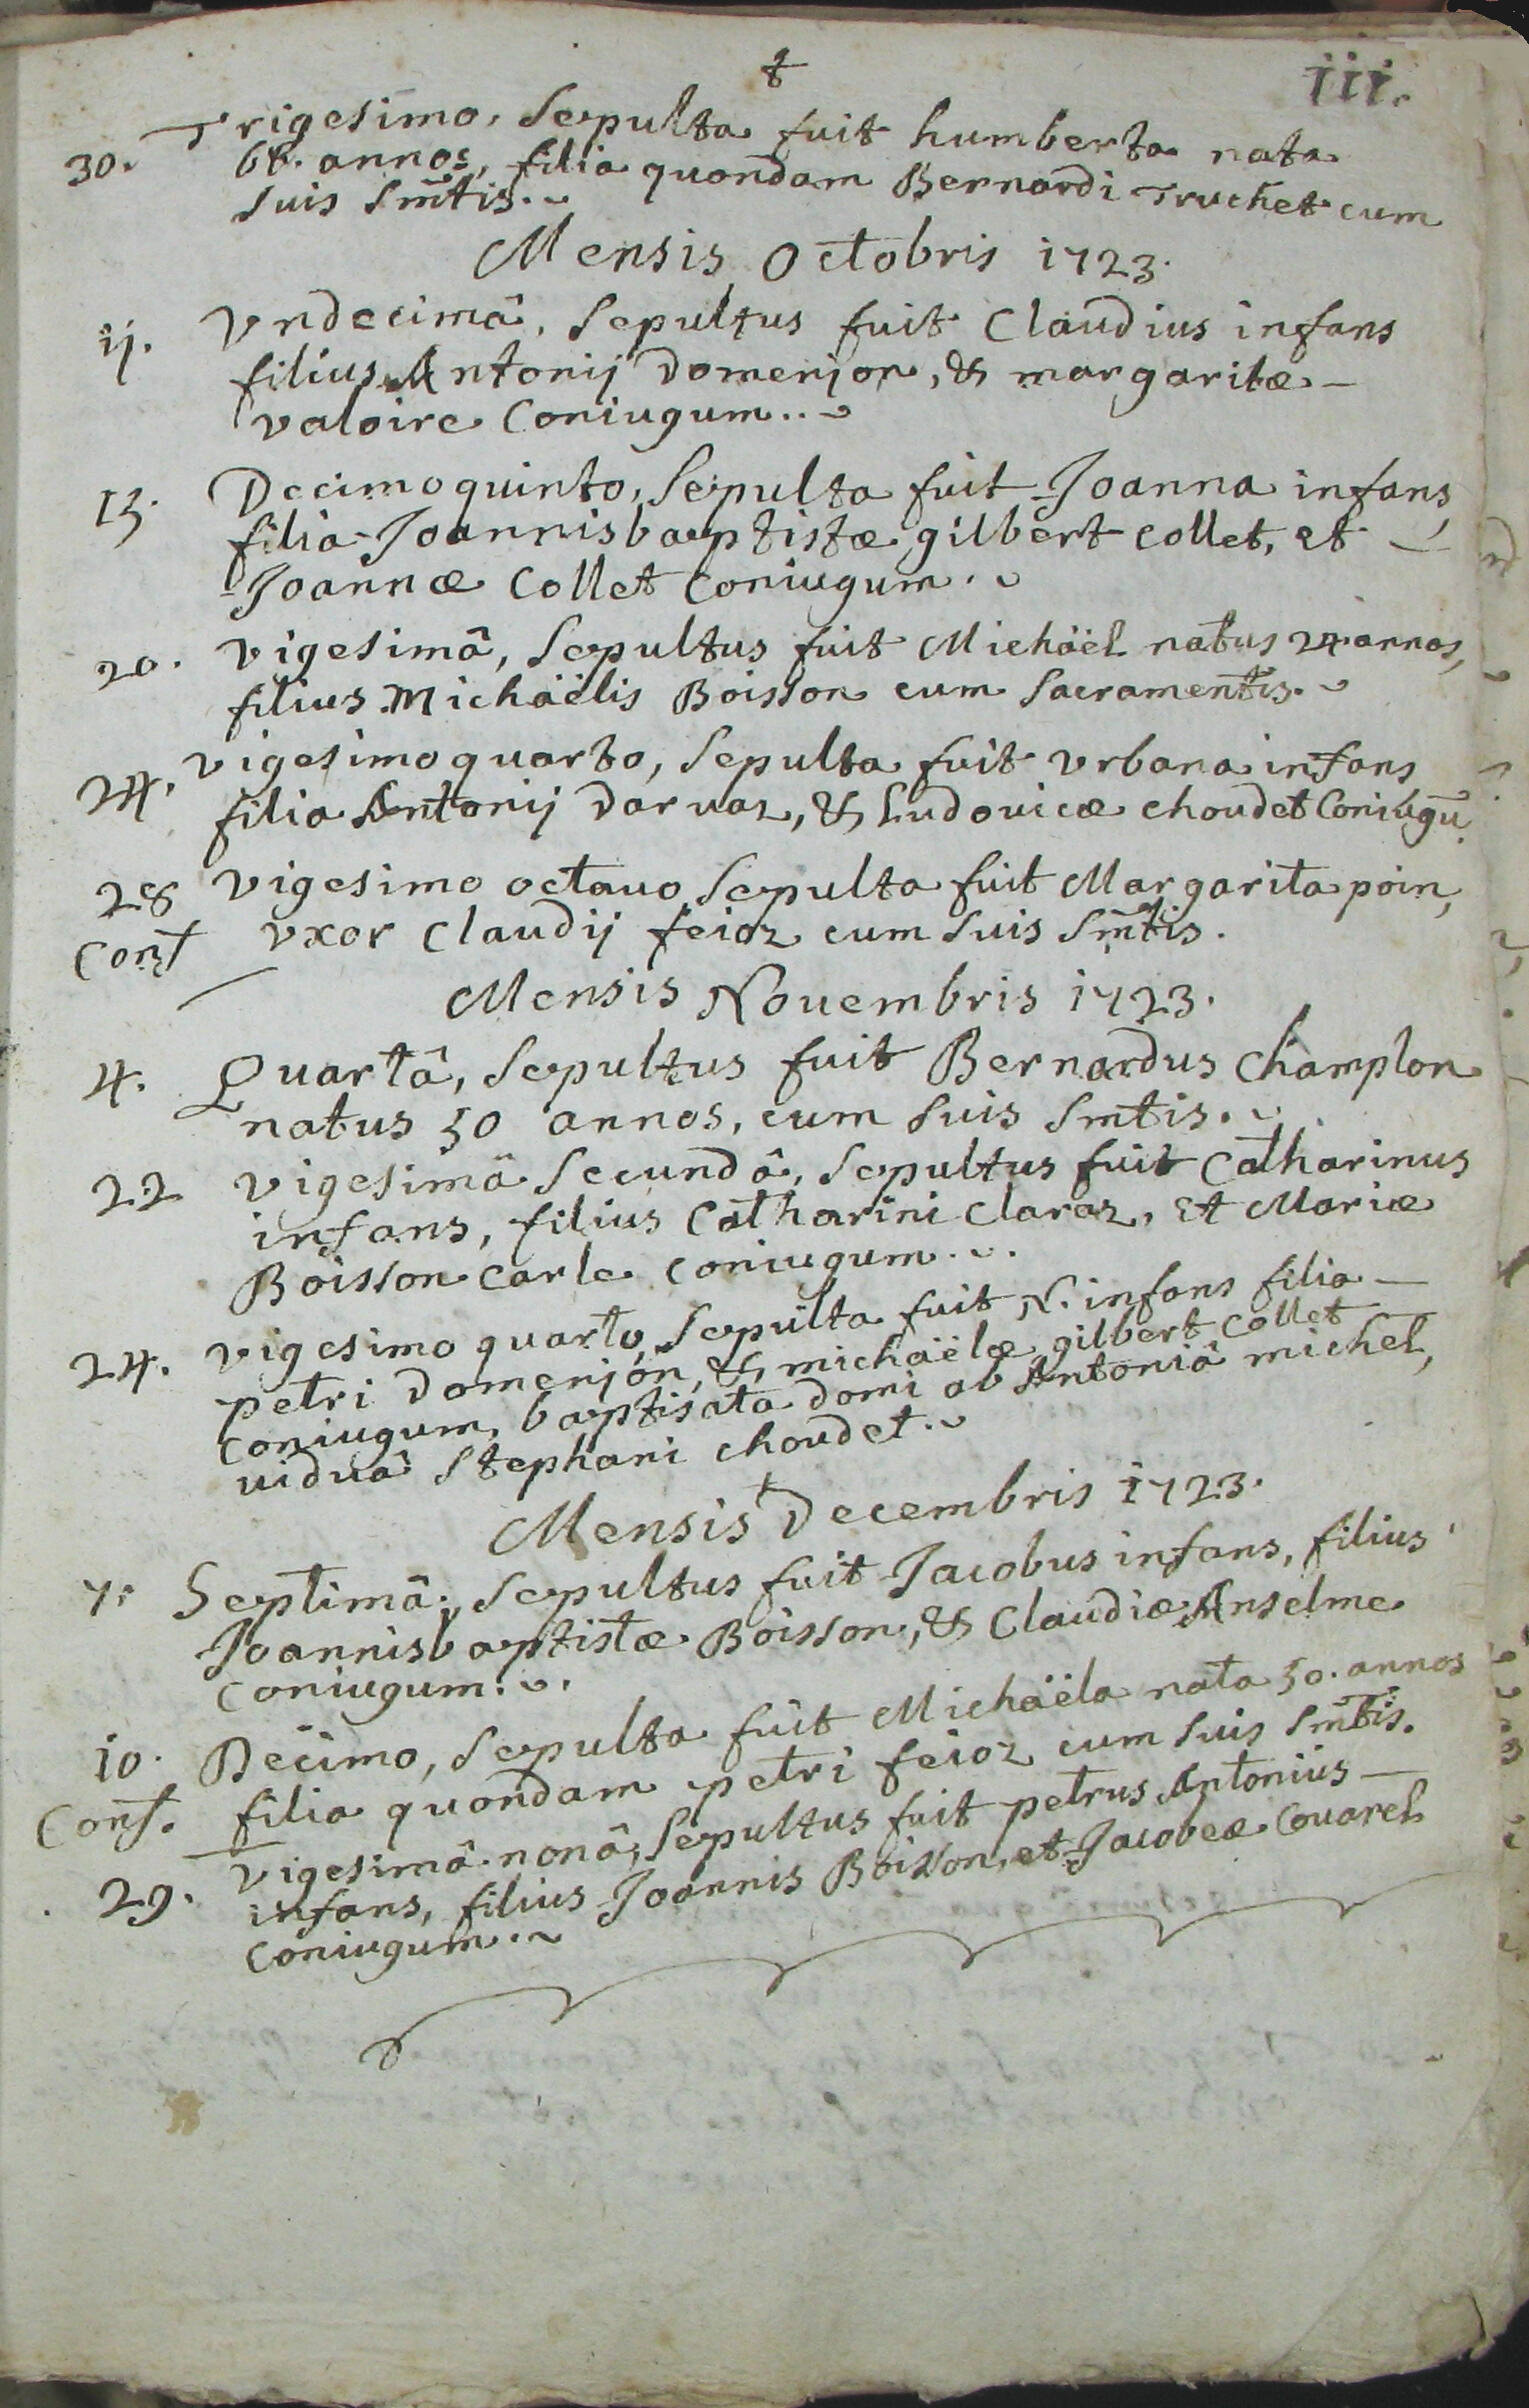 iii.
30. Trigesimo, Sepulta fuit humberta nata
annos, filia quondam Bernardi Truchet cum
suis Sm̃tis.
Mensis Octobris 1723.
ij. Vndecimâ, Sepultus fuit Claudius infans
filius Antonij Domenjon, & margaritæ
valoire Coniugum..
15. Decimoquinto, Sepulta fuit Joanna infans,
filia Joannisbaptistæ gilbert collet, et
Joannæ Collet Coniugum.
20. vigesimâ, Sepultus fuit Michäel natus 24 annos,
filius Michäelis Boisson cum Sacramentis.
24. vigesimoquarto, Sepulta fuit vrbana infans
filia Antonij Darvaz, & Ludovicæ choudet Coniugũ.
28 vigesimo octauo Sepulta fuit Margarita poin,
Conf vxor Claudij feioz cum suis Sm̃tis.
Mensis Nouembris 1723.
4. Quartâ, Sepultus fuit Bernardus Champlon
natus 50 annos, cum suis Smtis.
22 vigesimâ Secundâ, Sepultus fuit Catharinus
infans, filius Catharini Claraz, et Mariæ
Boisson carle coniugum.
24. vigesimo quarto, Sepulta fuit N. infans filia
petri Domenjon, & michäelæ gilbert Collet
coniugum, baptisata domi ab Antoniâ michel,
uiduâ Stephani choudet.
Mensis Decembris 1723.
7. Septimâ, Sepultus fuit Jacobus infans, filius
Joannisbaptistæ Boisson, & Claudiæ Anselme
coniugum.
10. Decimo, Sepulta fuit Michäela nata 50. annos
Conf. filia quondam petri feioz cum suis Sm̃tis.
29. vigesimâ nonâ, Sepultus fuit petrus Antonius
infans, filius Joannis Boisson, et Jacobeæ Couarel
Coniugum.